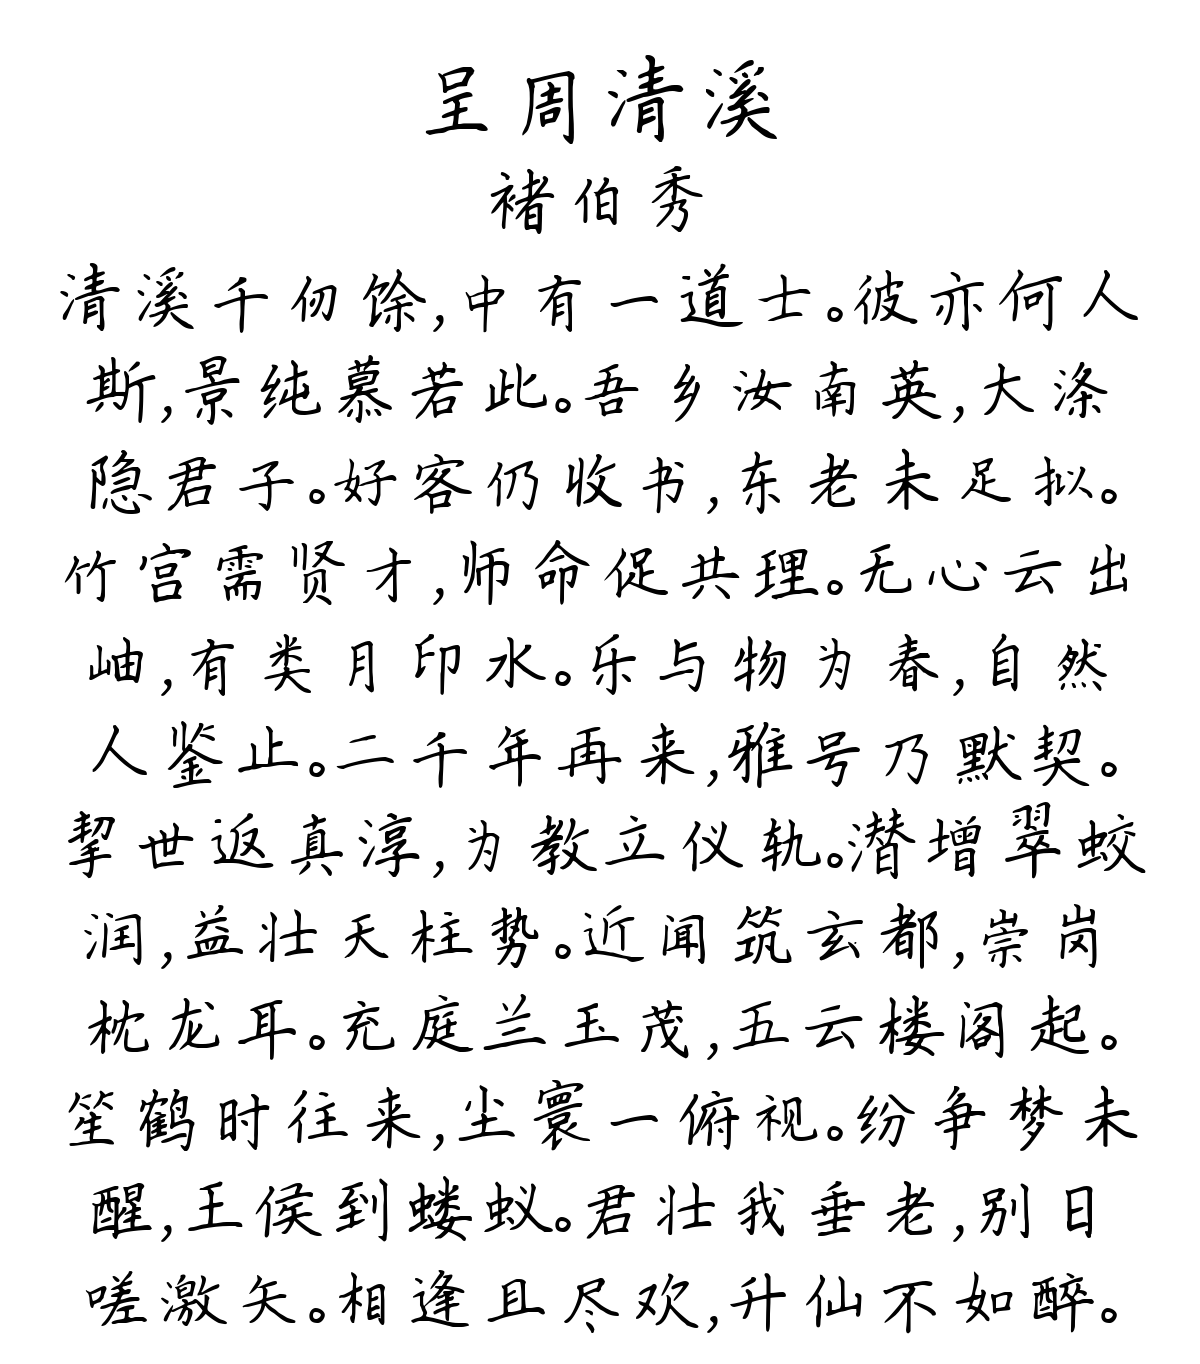 呈周清溪
褚伯秀
清溪千仞馀,中有一道士。彼亦何人
斯,景纯慕若此。吾乡汝南英,大涤
隐君子。好客仍收书,东老未足拟。
竹宫需贤才,师命促共理。无心云出
岫,有类月印水。乐与物为春,自然
人鉴止。二千年再来,雅号乃默契。
挈世返真淳,为教立仪轨。潜增翠蛟
润,益壮天柱势。近闻筑玄都,崇岗
枕龙耳。充庭兰玉茂,五云楼阁起。
笙鹤时往来,尘寰一俯视。纷争梦未
醒,王侯到蝼蚁。君壮我垂老,别日
嗟激矢。相逢且尽欢,升仙不如醉。